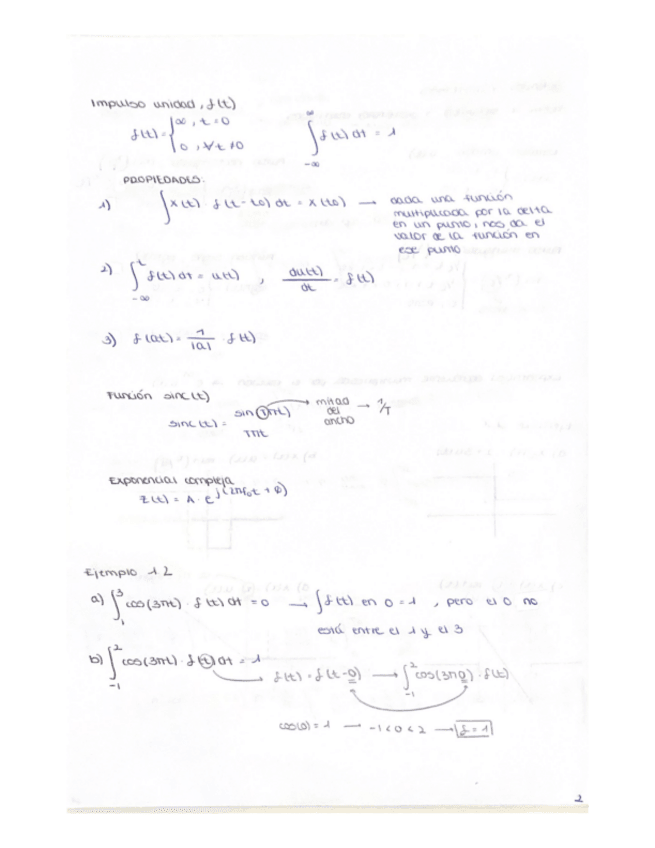 Impulso unidad, δ(t)
δ(t) = { ∞, t=0
0, ∀t ≠ 0
∫_{-∞}^{∞} δ(t) dt = 1
PROPIEDADES:
1) ∫ x(t) · δ(t-t0) dt = x(t0) → dada una función
multiplicada por la delta
en un punto, nos da el
valor de la función en
ese punto
2) ∫_{-∞}^{t} δ(t) dt = u(t) , du(t)/dt = δ(t)
3) δ(at) = 1/|a| · δ(t)
Función sinc(t)
sinc(t) = sin(Tπt)/Tπt → mitad del ancho → 1/T
Exponencial compleja
z(t) = A · e^{j(2πf0t + φ)}
Ejemplo 1.2
a) ∫_{1}^{3} cos(3πt) · δ(t) dt = 0 → ∫ δ(t) en 0 = 1 , pero el 0 no
está entre el 1 y el 3
b) ∫_{-1}^{2} cos(3πt) · δ(t) dt = 1
δ(t) = δ(t-0) → ∫_{-1}^{2} cos(3π0) · δ(t)
cos(0) = 1 → -1 < 0 < 2 → ∫ = 1
2